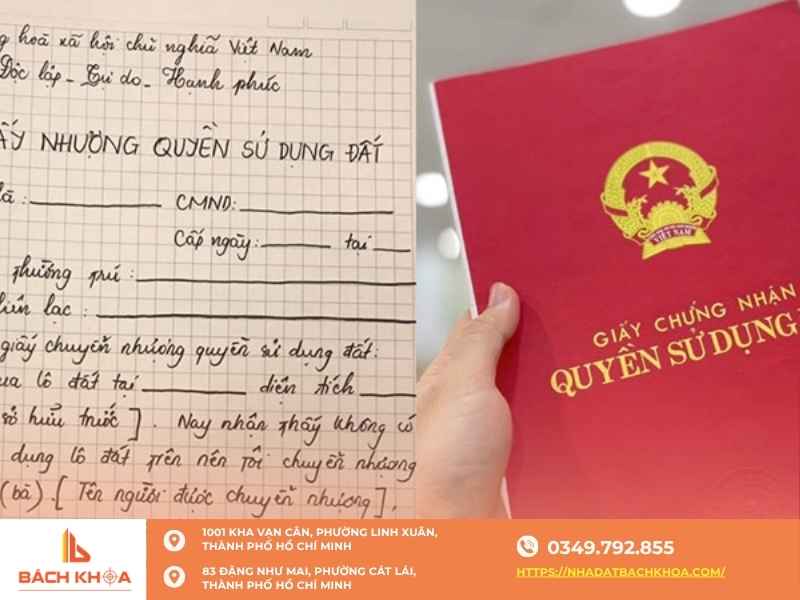 hoà xã hội chủ nghĩa Việt Nam
Độc lập - Tự do - Hạnh phúc
GIẤY NHƯỢNG QUYỀN SỬ DỤNG ĐẤT
CMND:
Cấp ngày: tại
thường trú :
liên lạc :
giấy chuyển nhượng quyền sử dụng đất:
lô đất tại diện tích
sở hữu trước]. Nay nhận thấy không có
dụng lô đất trên nên tôi chuyển nhượng
(bà). [Tên người được chuyển nhượng],
VIỆT NAM
GIẤY CHỨNG NHẬN
QUYỀN SỬ DỤNG
BÁCH KHOA
1001 KHA VẠN CÂN, PHƯỜNG LINH XUÂN,
THÀNH PHỐ HỒ CHÍ MINH
83 ĐẶNG NHƯ MAI, PHƯỜNG CÁT LÁI,
THÀNH PHỐ HỒ CHÍ MINH
0349.792.855
HTTPS://NHADATBACHKHOA.COM/